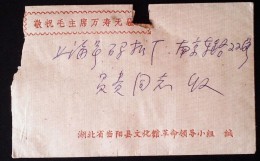 敬祝毛主席万寿无疆
上海 南京 路22号
负责同志 收
湖北省当阳县文化馆革命领导小组 缄